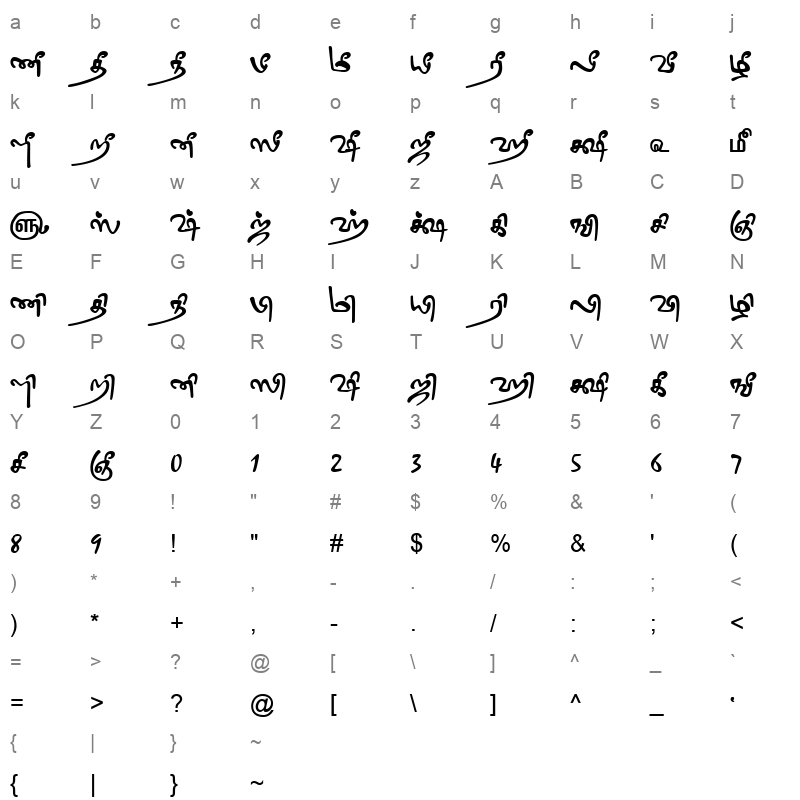 a b c d e f g h i j
ணீ தீ நீ பீ மீ யீ ரீ லீ வீ ழீ
k l m n o p q r s t
ளீ றீ னீ ஸீ ஷீ ஜீ ஹீ க்ஷீ
u v w x y z A B C D
ஸ் ஷ் ஜ் ஹ் க்ஷ் கி ஙி சி ஞி
E F G H I J K L M N
ணி தி நி பி மி யி ரி லி வி ழி
O P Q R S T U V W X
ளி றி னி ஸி ஷி ஜி ஹி க்ஷி கீ ஙீ
Y Z 0 1 2 3 4 5 6 7
சீ ஞீ 0 1 2 3 4 5 6 7
8 9 ! " # $ % & ' (
8 9 ! " # $ % & ' (
) * + , - . / : ; <
) * + , - . / : ; <
= > ? @ [ \ ] ^ _ `
= > ? @ [ \ ] ^ _ ‛
{ | } ~
{ | } ~